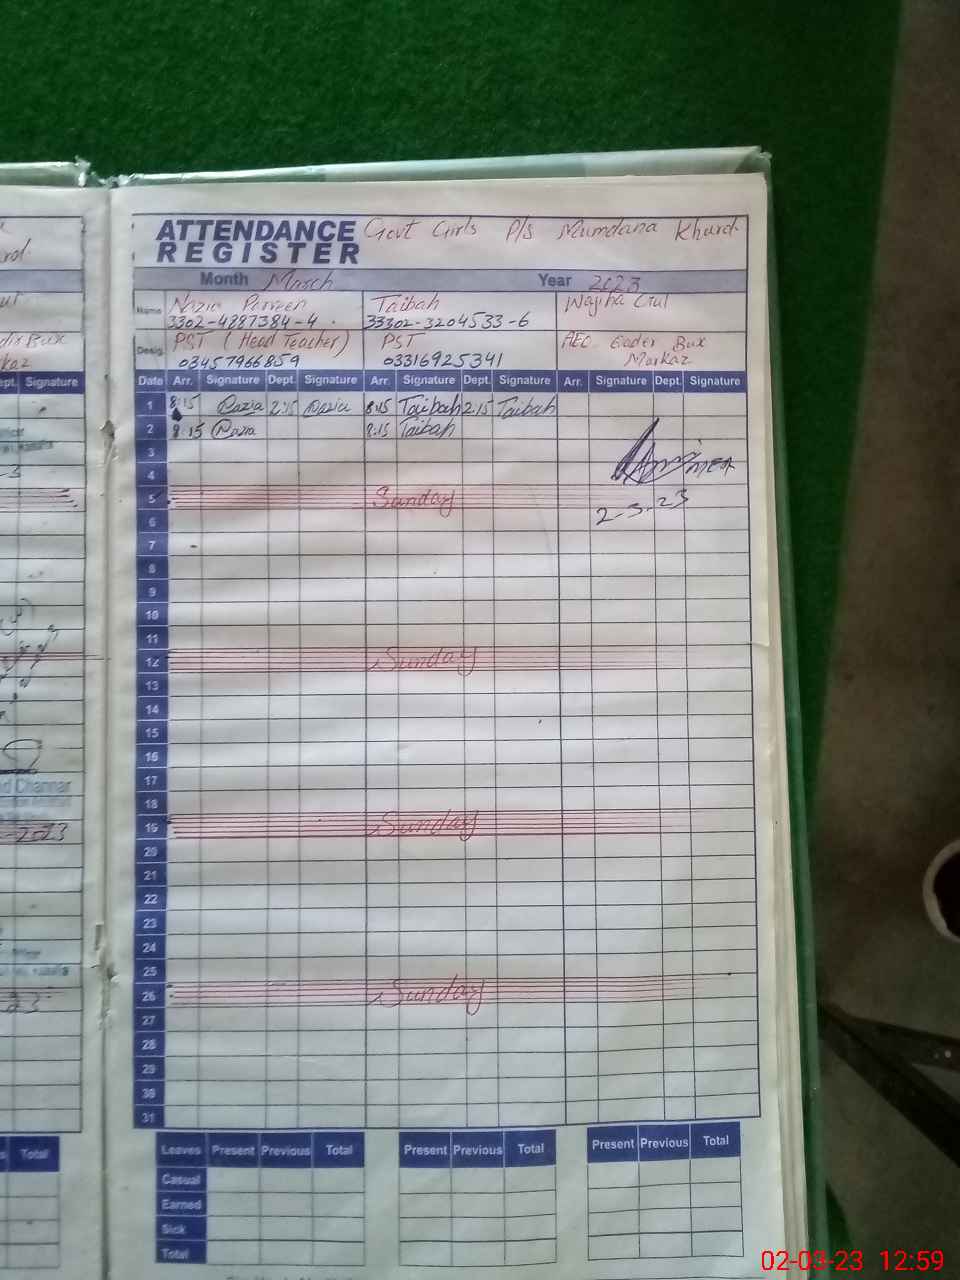 ATTENDANCE REGISTER Govt Girls P/S Mumdana Khurd.
Month March Year 2023
Name Nazia Parveen Taibah Wajiha Gul
3302-4887384-4 33302-3204533-6
Desig. PST (Head Teacher) PST AEC Qader Bux
03457966859 03316925341 Markaz
Date Arr. Signature Dept. Signature Arr. Signature Dept. Signature Arr. Signature Dept. Signature
1 8:15 Nazia 2:15 Nazia 8:15 Taibah 2:15 Taibah
2 8:15 Nazia 8:15 Taibah
3
4 MEA
5 Sunday
2-3-23
6
7
8
9
10
11
12 Sunday
13
14
15
16
17
18
19 Sunday
20
21
22
23
24
25
26 Sunday
27
28
29
30
31
Leaves Present Previous Total Present Previous Total Present Previous Total
Casual
Earned
Sick
Total
Dept. Signature
Channar
2023
Total
02-03-23 12:59